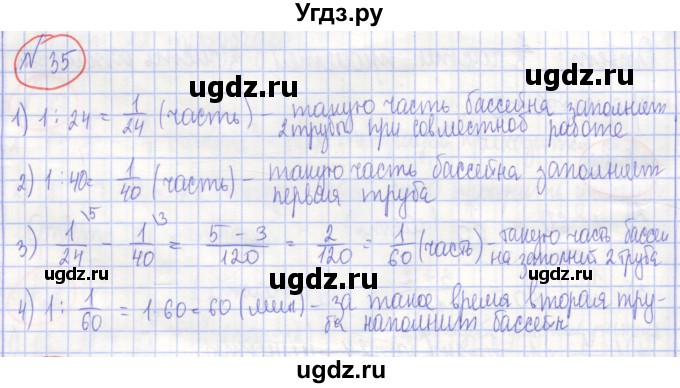 Угдз.ру
N 35
ugdz.ru ugdz.ru
1) 1 : 24 = 1/24 (часть) - такую часть бассейна заполняет
2 трубы при совместной работе
ugdz.ru ugdz.ru
2) 1 : 40 = 1/40 (часть) - такую часть бассейна заполняет
первая труба
ugdz.ru ugdz.ru
3) 1/24 \5 - 1/40 \3 = 5 - 3/120 = 2/120 = 1/60 (часть) - такую часть бассей
на заполнит 2 труба
ugdz.ru ugdz.ru
4) 1 : 1/60 = 1 · 60 = 60 (мин) - за такое время вторая тру-
ба наполнит бассейн
ugdz.ru ugdz.ru